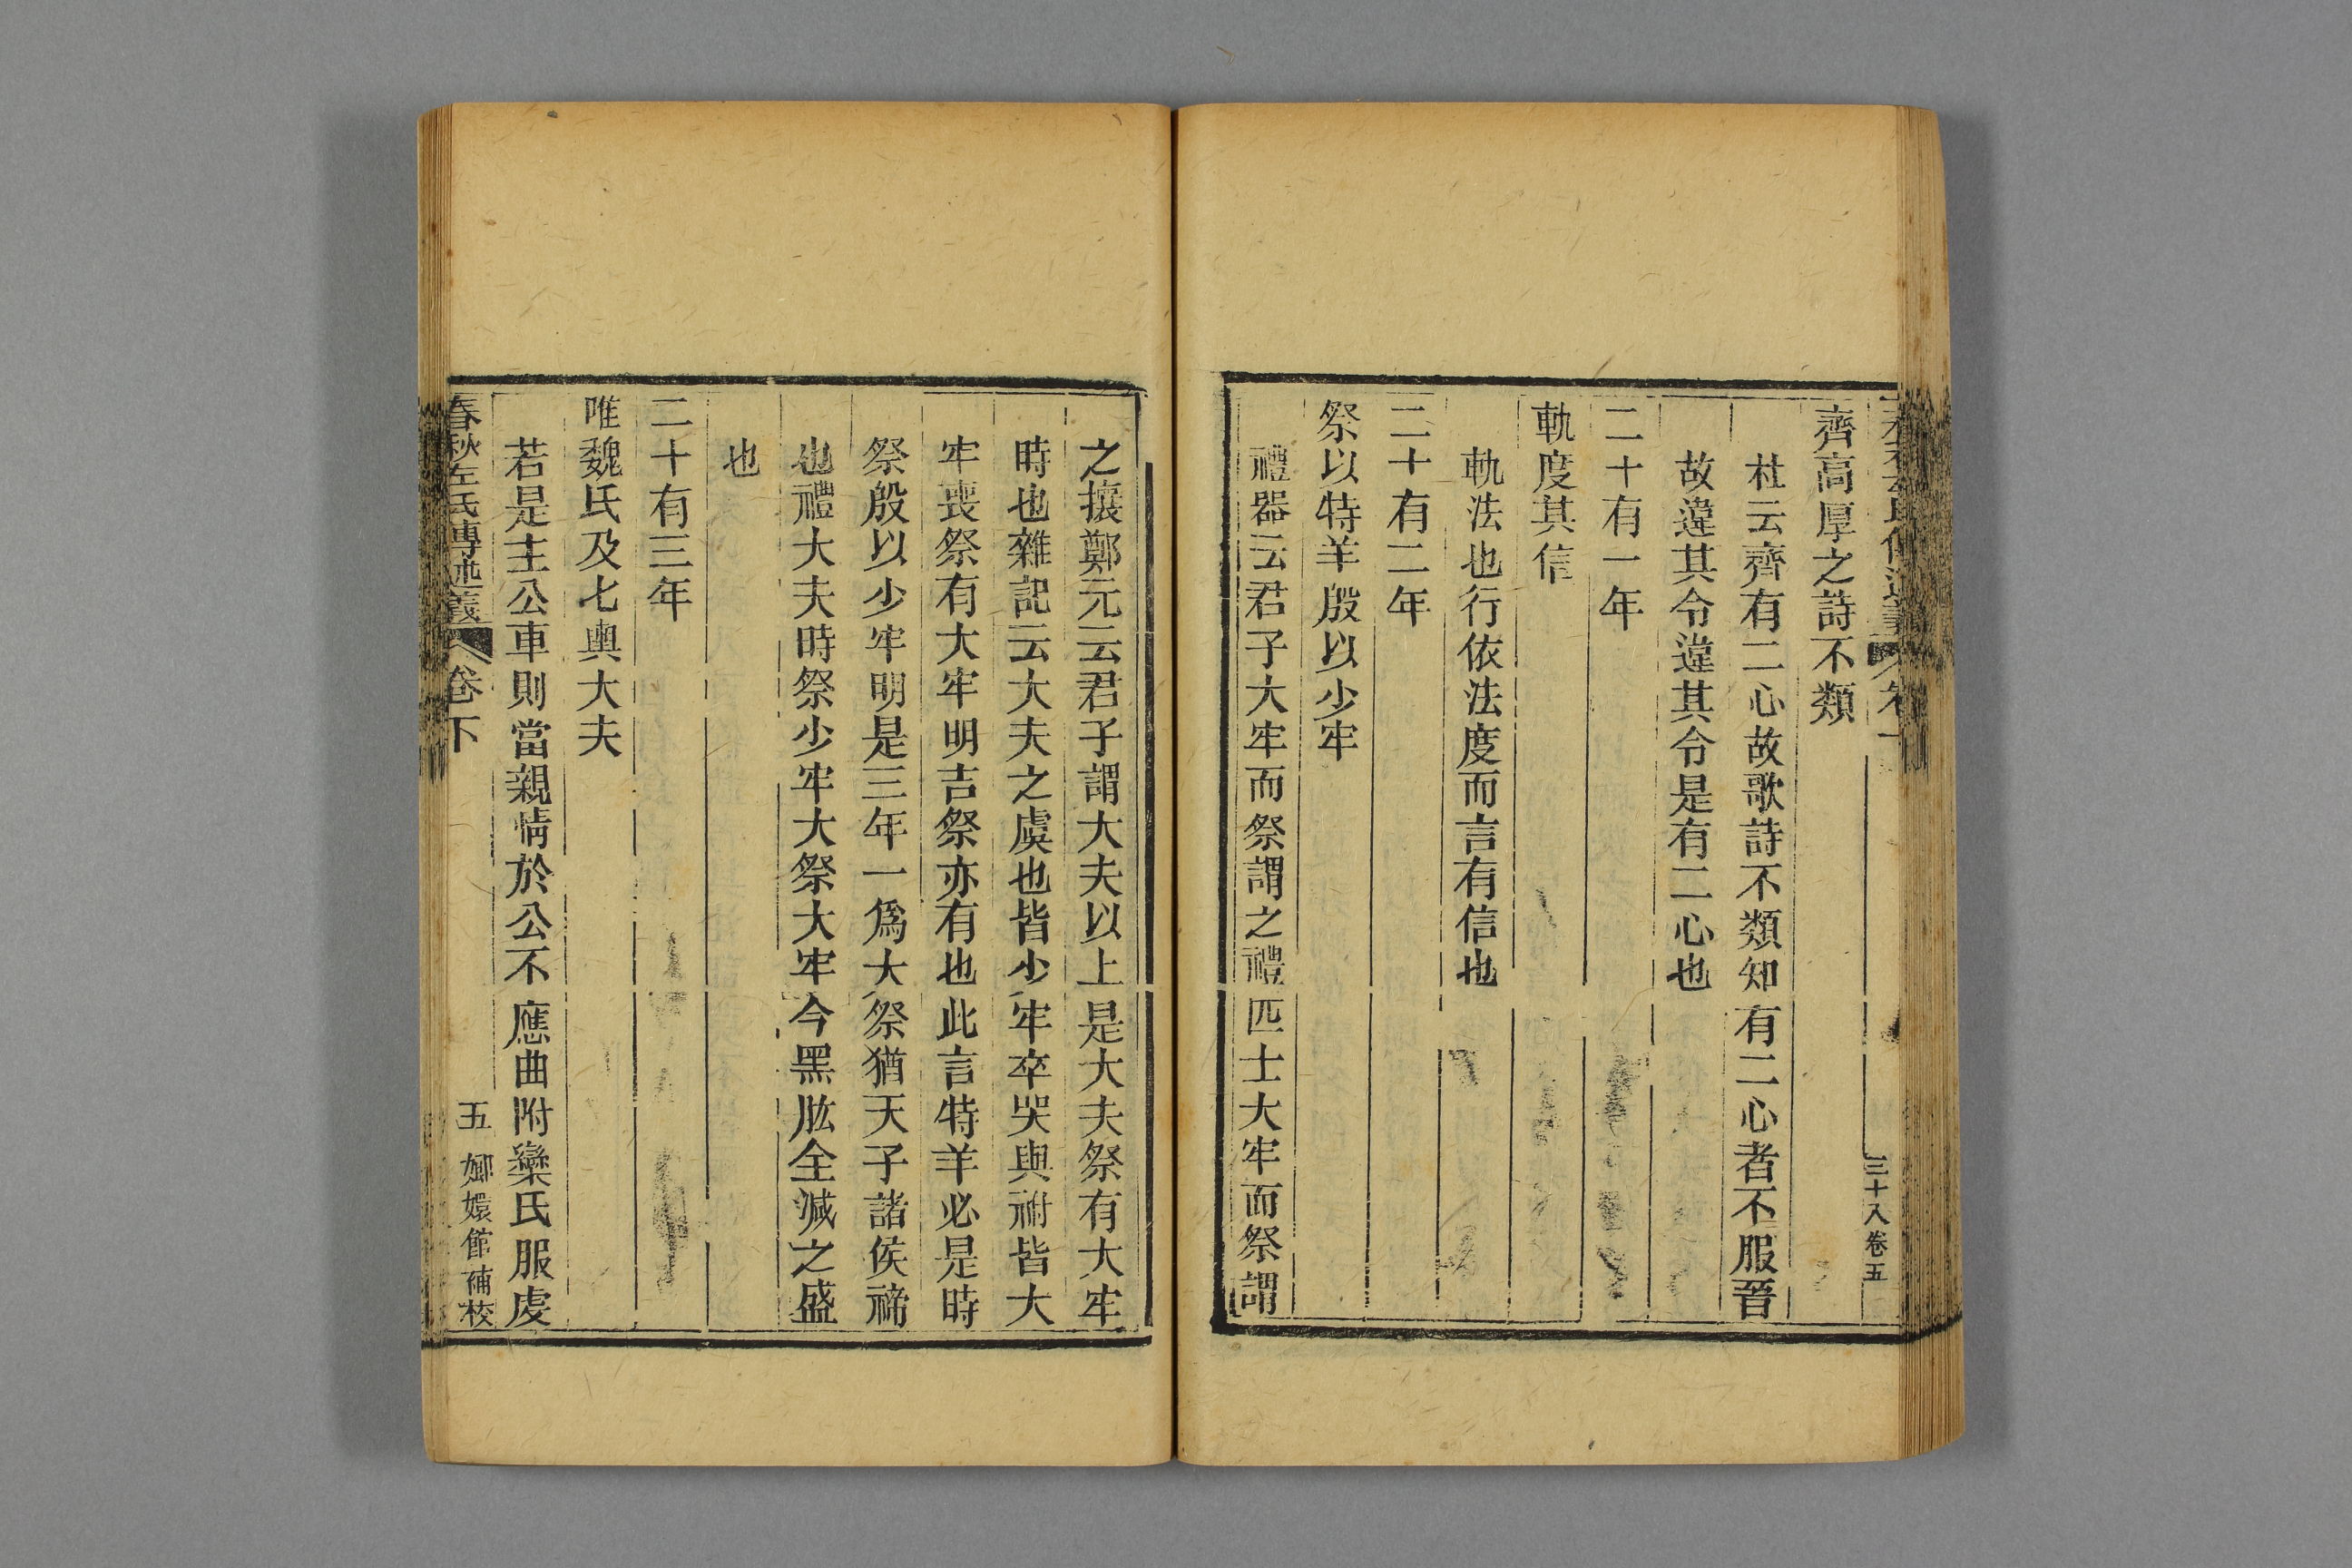 三十八卷五
齊高厚之詩不類
杜云齊有二心故歌詩不類知有二心者不服晉
故違其令違其令是有二心也
二十有一年
軌度其信
軌法也行依法度而言有信也
二十有二年
祭以特羊殷以少牢
禮器云君子大牢而祭謂之禮匹士大牢而祭謂
之攘鄭元云君子謂大夫以上是大夫祭有大牢
時也雜記云大夫之虞也皆少牢卒哭與祔皆大
牢喪祭有大牢明吉祭亦有也此言特羊必是時
祭殷以少牢明是三年一爲大祭猶天子諸侯禘
也禮大夫時祭少牢大祭大牢今黑肱全減之盛
也
二十有三年
唯魏氏及七輿大夫
若是主公車則當親情於公不應曲附欒氏服虔
春秋左氏傳述義 卷下 五 嫏嬛館補校